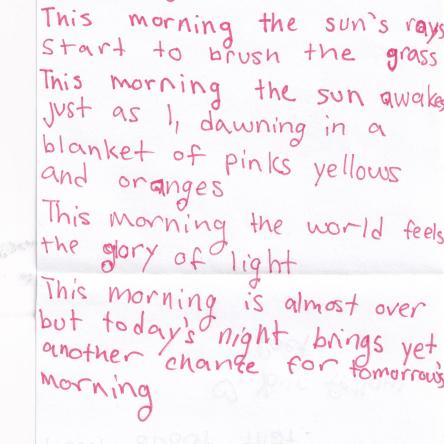 This morning the sun's rays
Start to brush the grass
This morning the sun awakes
just as I, dawning in a
blanket of pinks yellows
and oranges
This morning the world feels
the glory of light
This morning is almost over
but today's night brings yet
another change for tomorrow's
morning